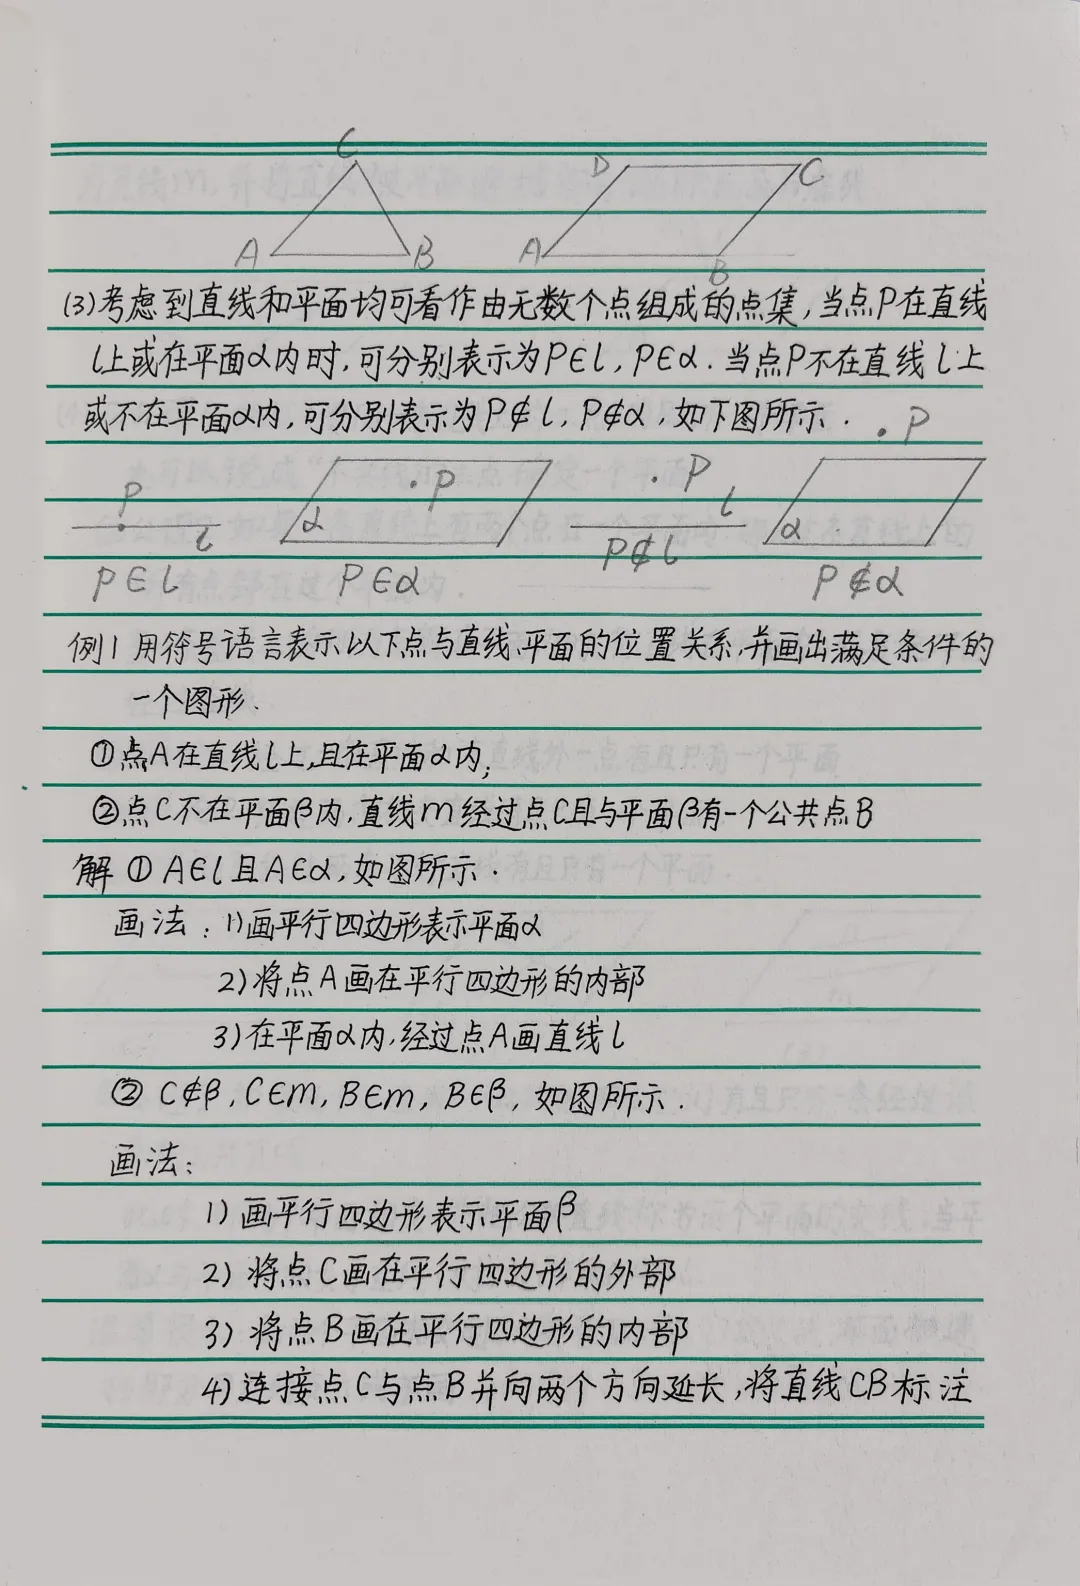 C D C
A B A B
(3)考虑到直线和平面均可看作由无数个点组成的点集,当点P在直线
l上或在平面α内时,可分别表示为P∈l,P∈α.当点P不在直线l上
或不在平面α内,可分别表示为P∉l,P∉α,如下图所示.
P
P l
α P
P l
α
P∈l P∈α P∉l P∉α
例1 用符号语言表示以下点与直线、平面的位置关系,并画出满足条件的
一个图形.
①点A在直线l上,且在平面α内;
②点C不在平面β内,直线m经过点C且与平面β有一个公共点B
解 ① A∈l且A∈α,如图所示.
画法:1)画平行四边形表示平面α
2)将点A画在平行四边形的内部
3)在平面α内,经过点A画直线l
② C∉β,C∈m,B∈m,B∈β,如图所示.
画法:
1)画平行四边形表示平面β
2)将点C画在平行四边形的外部
3)将点B画在平行四边形的内部
4)连接点C与点B并向两个方向延长,将直线CB标注